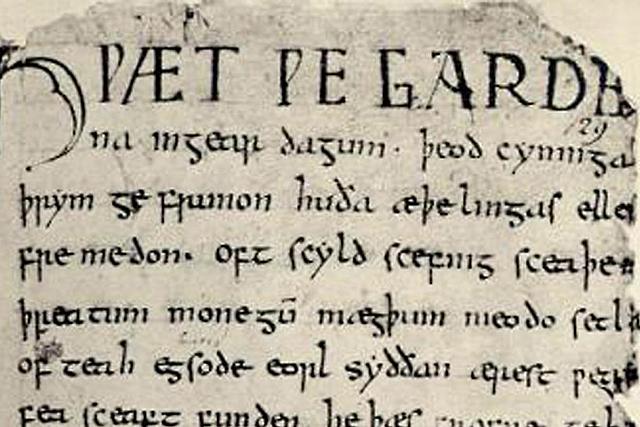 HǷÆT ǷE GARDE
129
na ingear dagum. þeod cyninga
þrym ge frunon huða æþelingas elle
fre medon. oft scyld scefing sceaþe
þreatum monegū mægþum meodo setl
of teah egsode eorl syððan ærest ƿear
fea sceaft funden he þæs